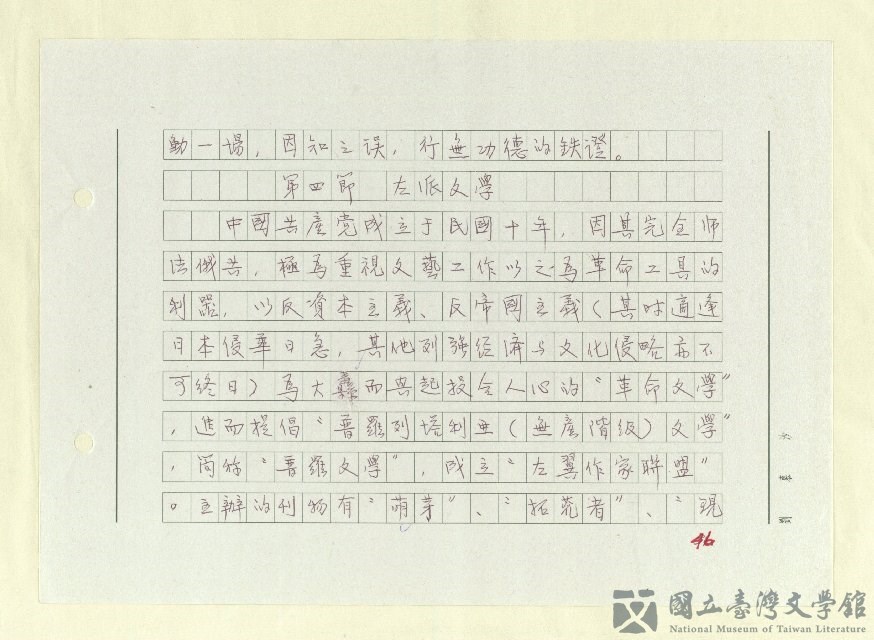 動一場，因知之误，行無功德的鉄證。
第四節　左派文學
中國共產党成立于民國十年，因其完全师
法俄共，極為重視文藝工作以之為革命工具的
利器，以反資本主義、反帝國主義（其时適逢
日本侵華日急，其他列強经濟与文化侵略亦不
可终日）為大纛而興起投合人心的“革命文學”
，進而提倡“普羅列塔利亜（無產階级）文學”
，简称“普羅文學”，成立“左翼作家聯盟”
。主辦的刊物有“萌芽”、“拓荒者”、“現
46
國立臺灣文學館
National Museum of Taiwan Literature